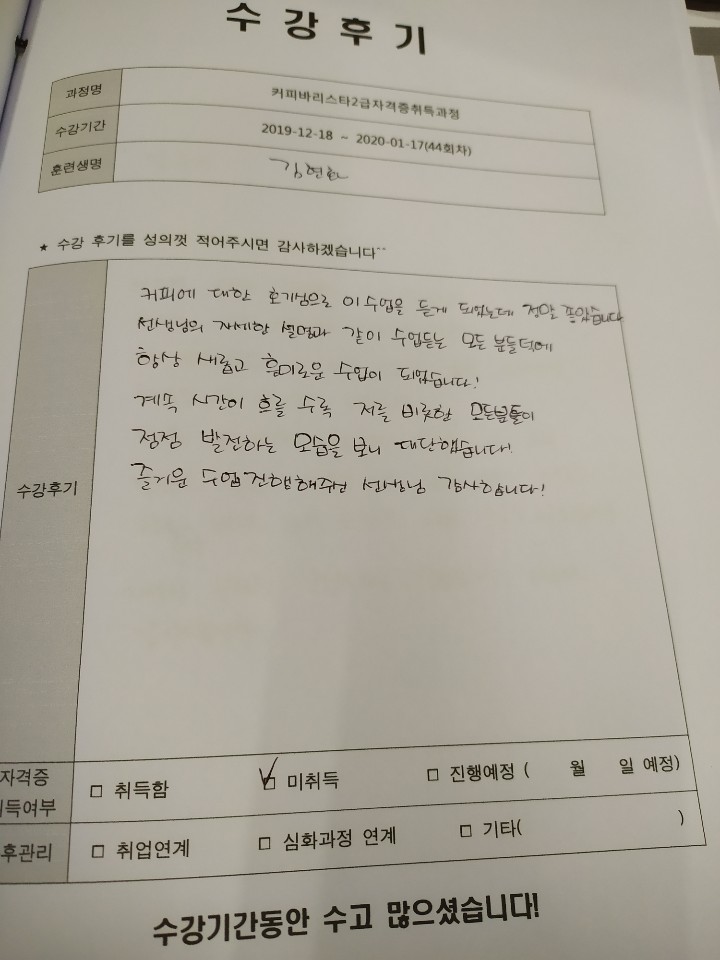 수 강 후 기
과정명 커피바리스타2급자격증취득과정
수강기간 2019-12-18 ~ 2020-01-17(44회차)
훈련생명 김현화
★ 수강 후기를 성의껏 적어주시면 감사하겠습니다~~
커피에 대한 호기심으로 이 수업을 듣게 되었는데 정말 좋았습니다
선생님의 자세한 설명과 같이 수업듣는 모든 분들덕에
항상 새롭고 흥미로운 수업이 되었습니다!
계속 시간이 흐를 수록 저를 비롯한 모든분들이
수강후기
점점 발전하는 모습을 보니 대단했습니다!
즐거운 수업 진행해주신 선생님 감사합니다!
자격증
득여부
□ 취득함 ☑ 미취득 □ 진행예정 ( 월 일 예정)
후관리 □ 취업연계 □ 심화과정 연계 □ 기타( )
수강기간동안 수고 많으셨습니다!